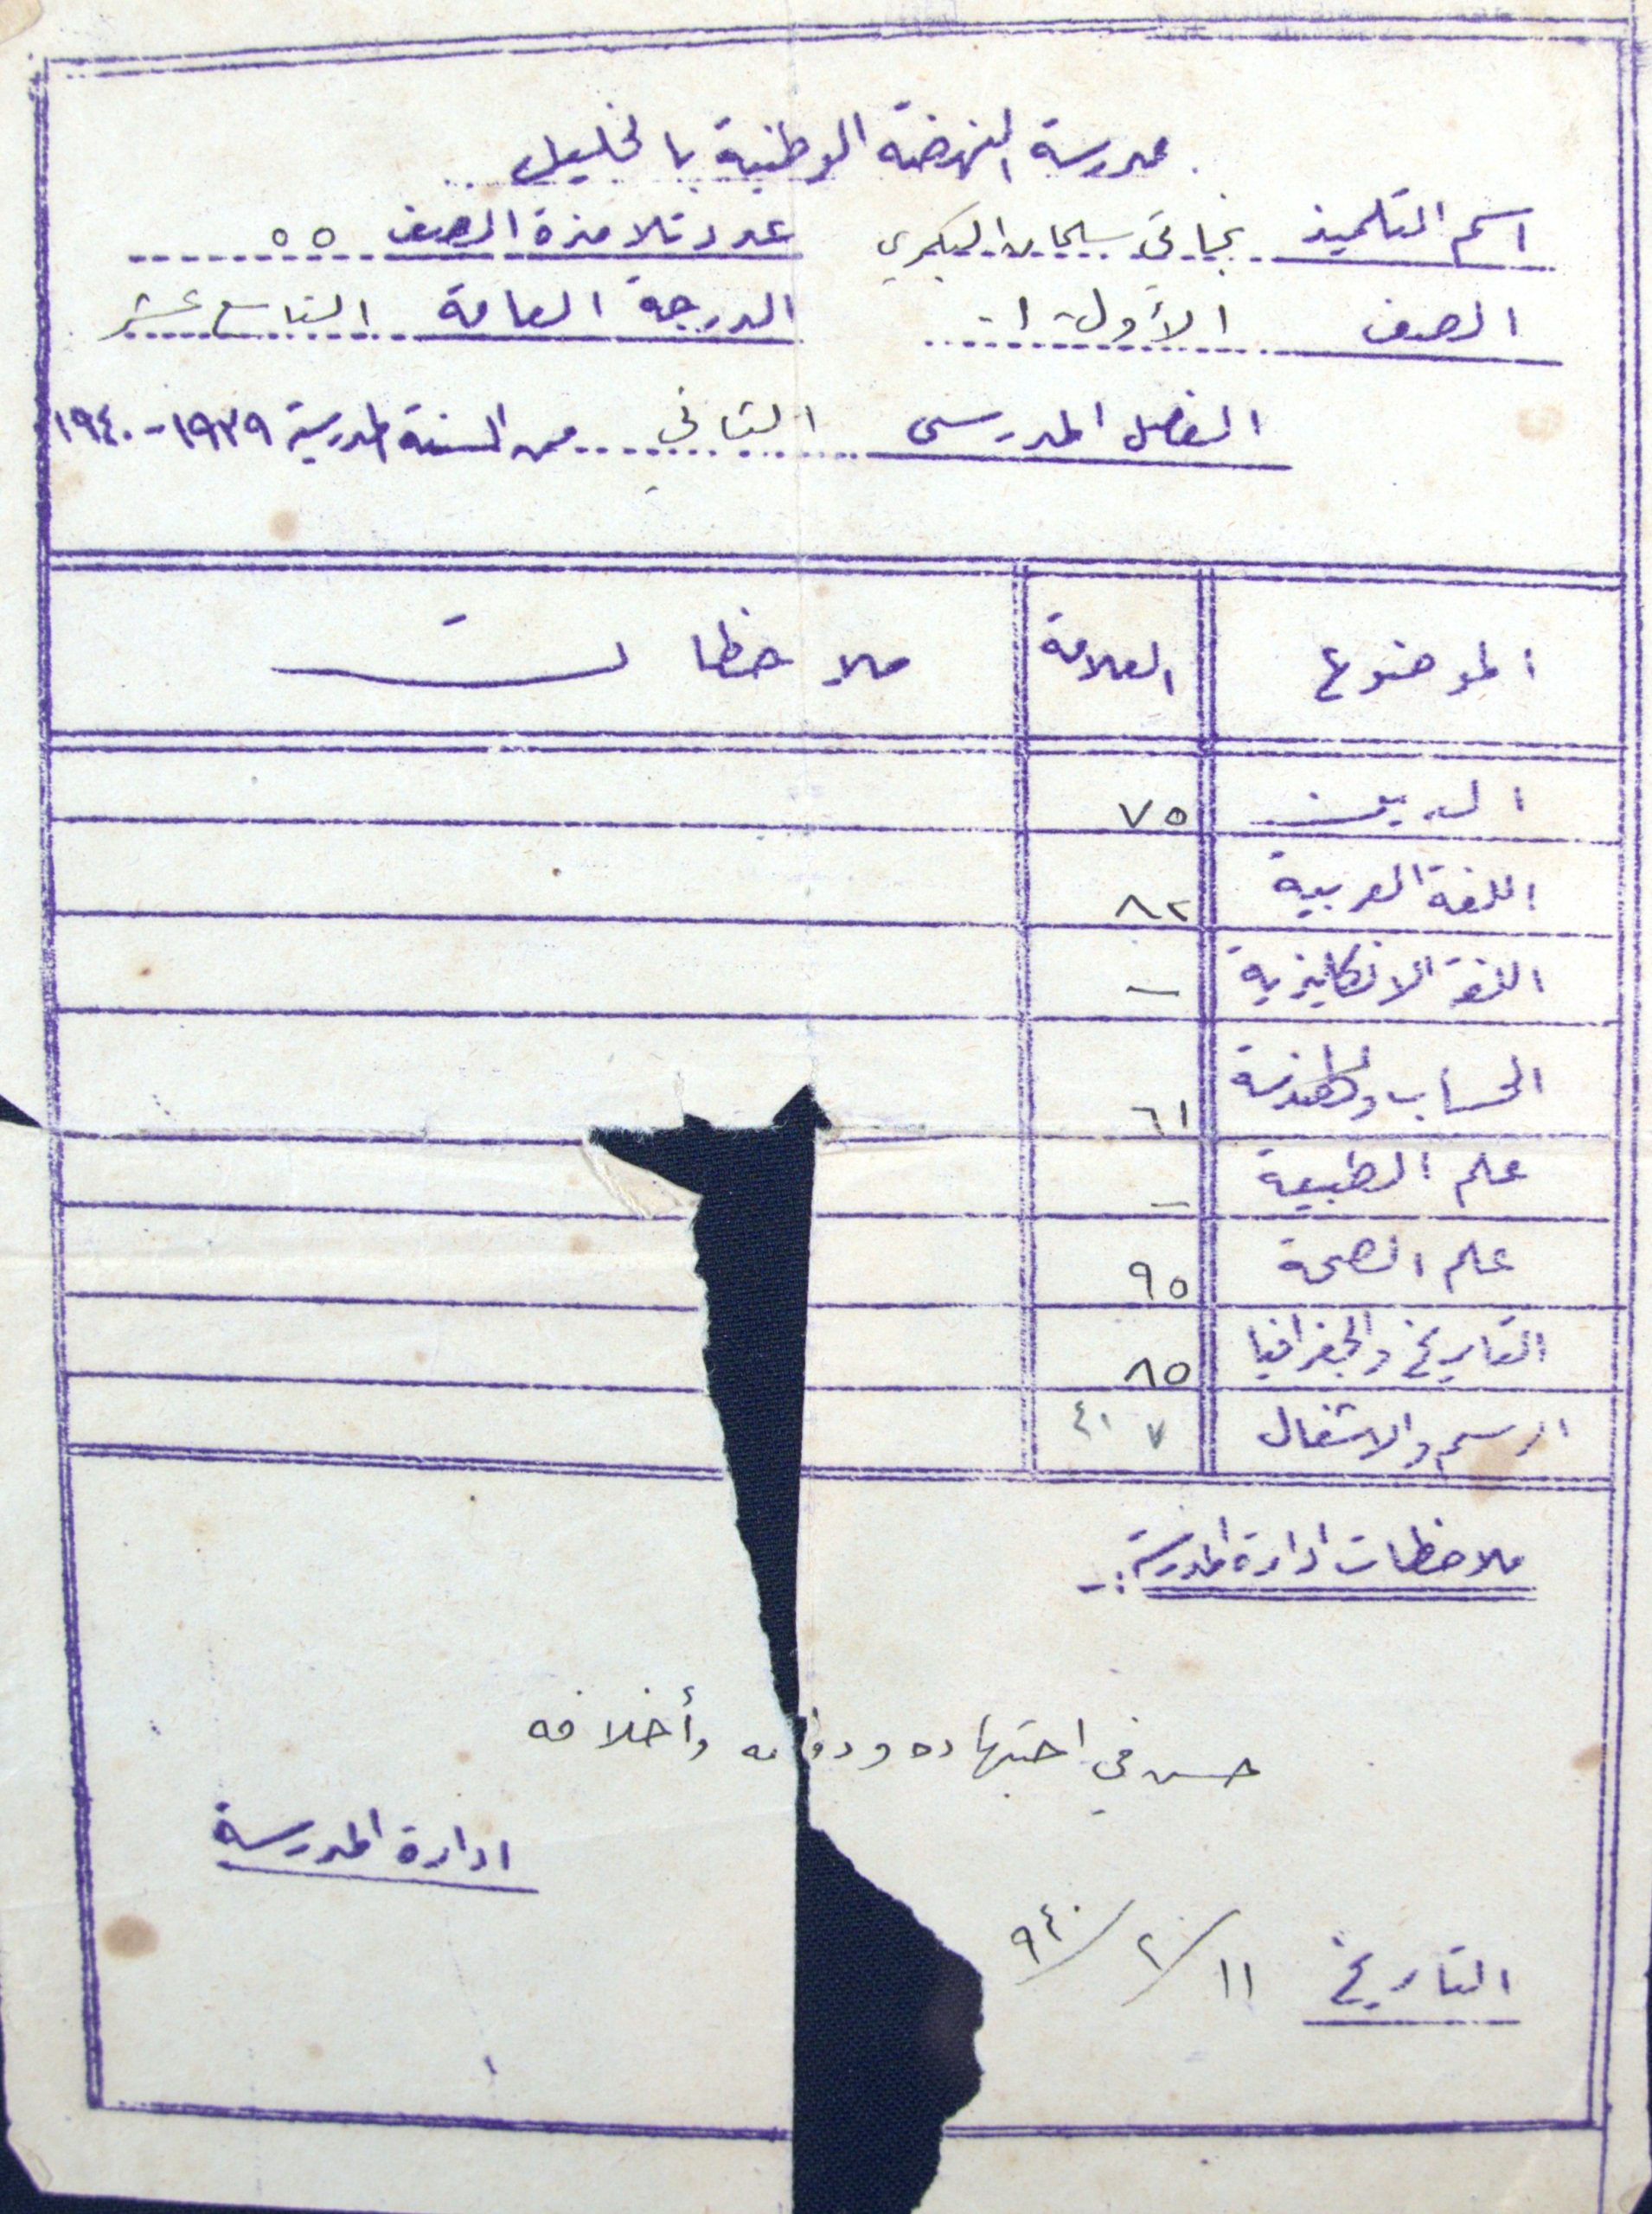 مدرسة النهضة الوطنية بالخليل
اسم التلميذ نجاتي سليمان البكري عدد تلامذة الصف ٥٥
الصف الأول - ا - الدرجة العامة التاسع عشر
الفصل المدرسي الثاني من السنة المدرسية ١٩٣٩ - ١٩٤٠
الموضوع العلامة ملاحظات
الدين ٧٥
اللغة العربية ٨٢
اللغة الانكليزية —
الحساب والهندسة ٦١
علم الطبيعة —
علم الصحة ٩٥
التاريخ والجغرافيا ٨٥
الرسم والاشغال ٧
ملاحظات ادارة المدرسة :-
حسن في اجتهاده ودوامه وأخلاقه
ادارة المدرسة
التاريخ ١١/٢/٩٤٠